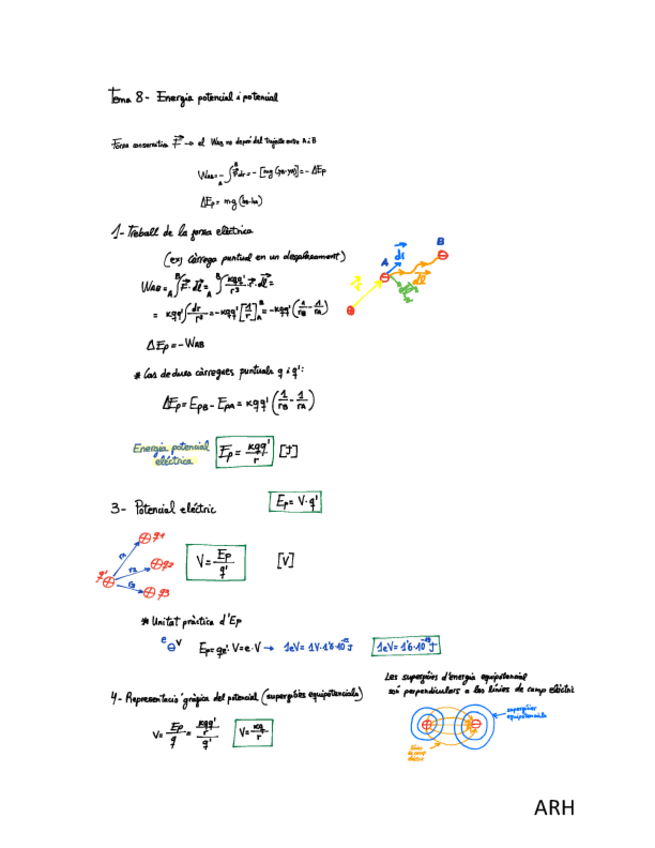 Tema 8- Energia potencial i potencial
Força conservativa F⃗ → el WAB no depèn del trajecte entre A i B
WAB = - ∫ F⃗dr = - [mg(yB-yA)] = - ΔEp
ΔEp = mg (hB-hA)
1- Treball de la força elèctrica
(ex) Càrrega puntual en un desplaçament)
WAB = A∫B F⃗·dl⃗ = A∫B kqq'/r² · r⃗·dl⃗ =
= kqq' ∫ dr/r² = -kqq' [1/r]AB = -kqq' (1/rB - 1/rA)
A
B
dr⃗
dl⃗
r⃗
ΔEp = -WAB
* Cas de dues càrregues puntuals q i q':
ΔEp = EpB - EpA = kqq' (1/rB - 1/rA)
Energia potencial
elèctrica
Ep = kqq'/r [J]
3- Potencial elèctric
Ep = V·q'
q1
q2
q3
q'
r1
r2
r3
V = Ep/q' [V]
* Unitat pràctica d'Ep
e
V
Ep = qe·V = e·V → 1eV = 1V·1'6·10⁻¹⁹ J
1eV = 1'6·10⁻¹⁹ J
4- Representació gràfica del potencial (superfícies equipotencials)
V = Ep/q = kqq'/r/q'
V = kq/r
Les superfícies d'energia equipotencial
són perpendiculars a les línies de camp elèctric
superfícies
equipotencials
línies
de camp
elèctric
ARH